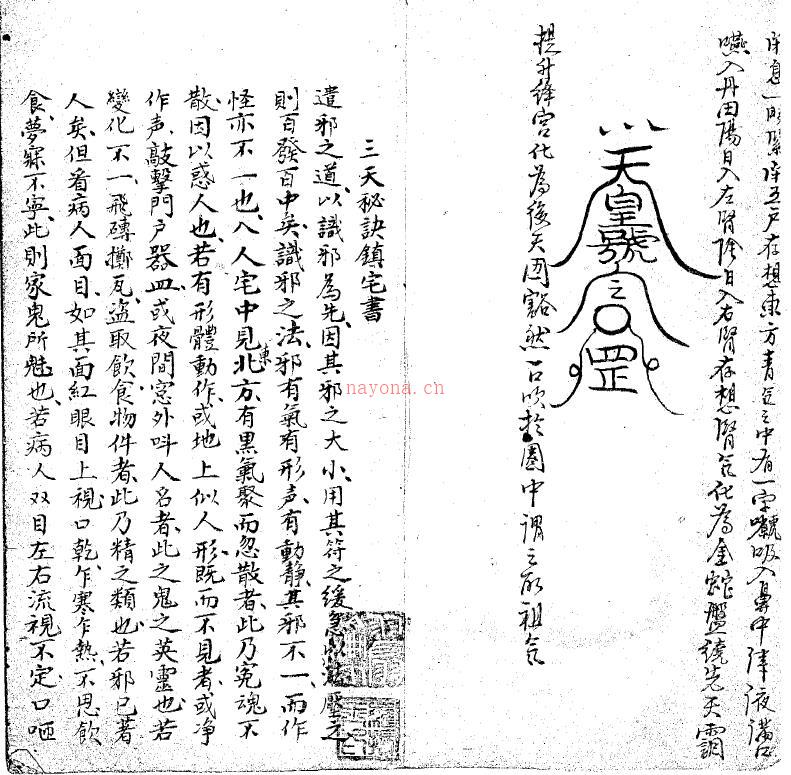 存想東方青炁之中有一字吸入鼻中津液滿口
嚥入丹田陽日入左腎陰日入右腎存想腎氣化為金蛇盤繞先天
天皇號
罡
提升絳宮化為後天罡豁然一口吹於圈中謂之取祖炁
三天秘訣鎮宅書
遣邪之道、以識邪為先、因其邪之大小、用其符之緩急以法壓之
則百發百中矣、識邪之法、邪有氣有形声、有動靜、其邪不一、而作
怪亦不一也、入人宅中見東北方、有黑氣聚而忽散者、此乃冤魂不
散、因以惑人也、若有形體動作、或地上似人形、既而不見者、或净
作声、敲擊門户器皿、或夜間窓外呌人名者、此之鬼之英靈也、若
變化不一、飛磚擲瓦、盜取飲食物件者、此乃精之類也、若邪已著
人矣、但看病人面目、如其面紅眼目上視、口乾、乍寒乍熱、不思飲
食、夢寐不寧、此則家鬼所魅也、若病人双目左右流視不定口咂
nayona.cn